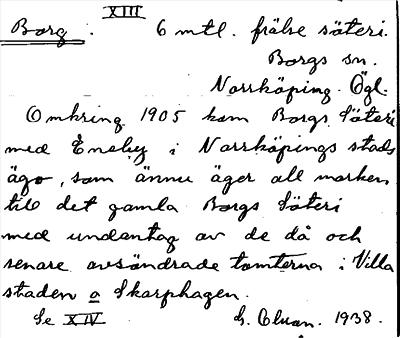 XIII
Borg. 6 mtl. frälse säteri.
Borgs sn.
Norrköping. Ögl.
Omkring 1905 kom Borgs Säteri
med Eneby i Norrköpings stads
ägo, som ännu äger all marken
till det gamla Borgs Säteri
med undantag av de då och
senare avsöndrade tomterna i Villa
staden o Skarphagen.
Se XIV G. Cluan. 1938.